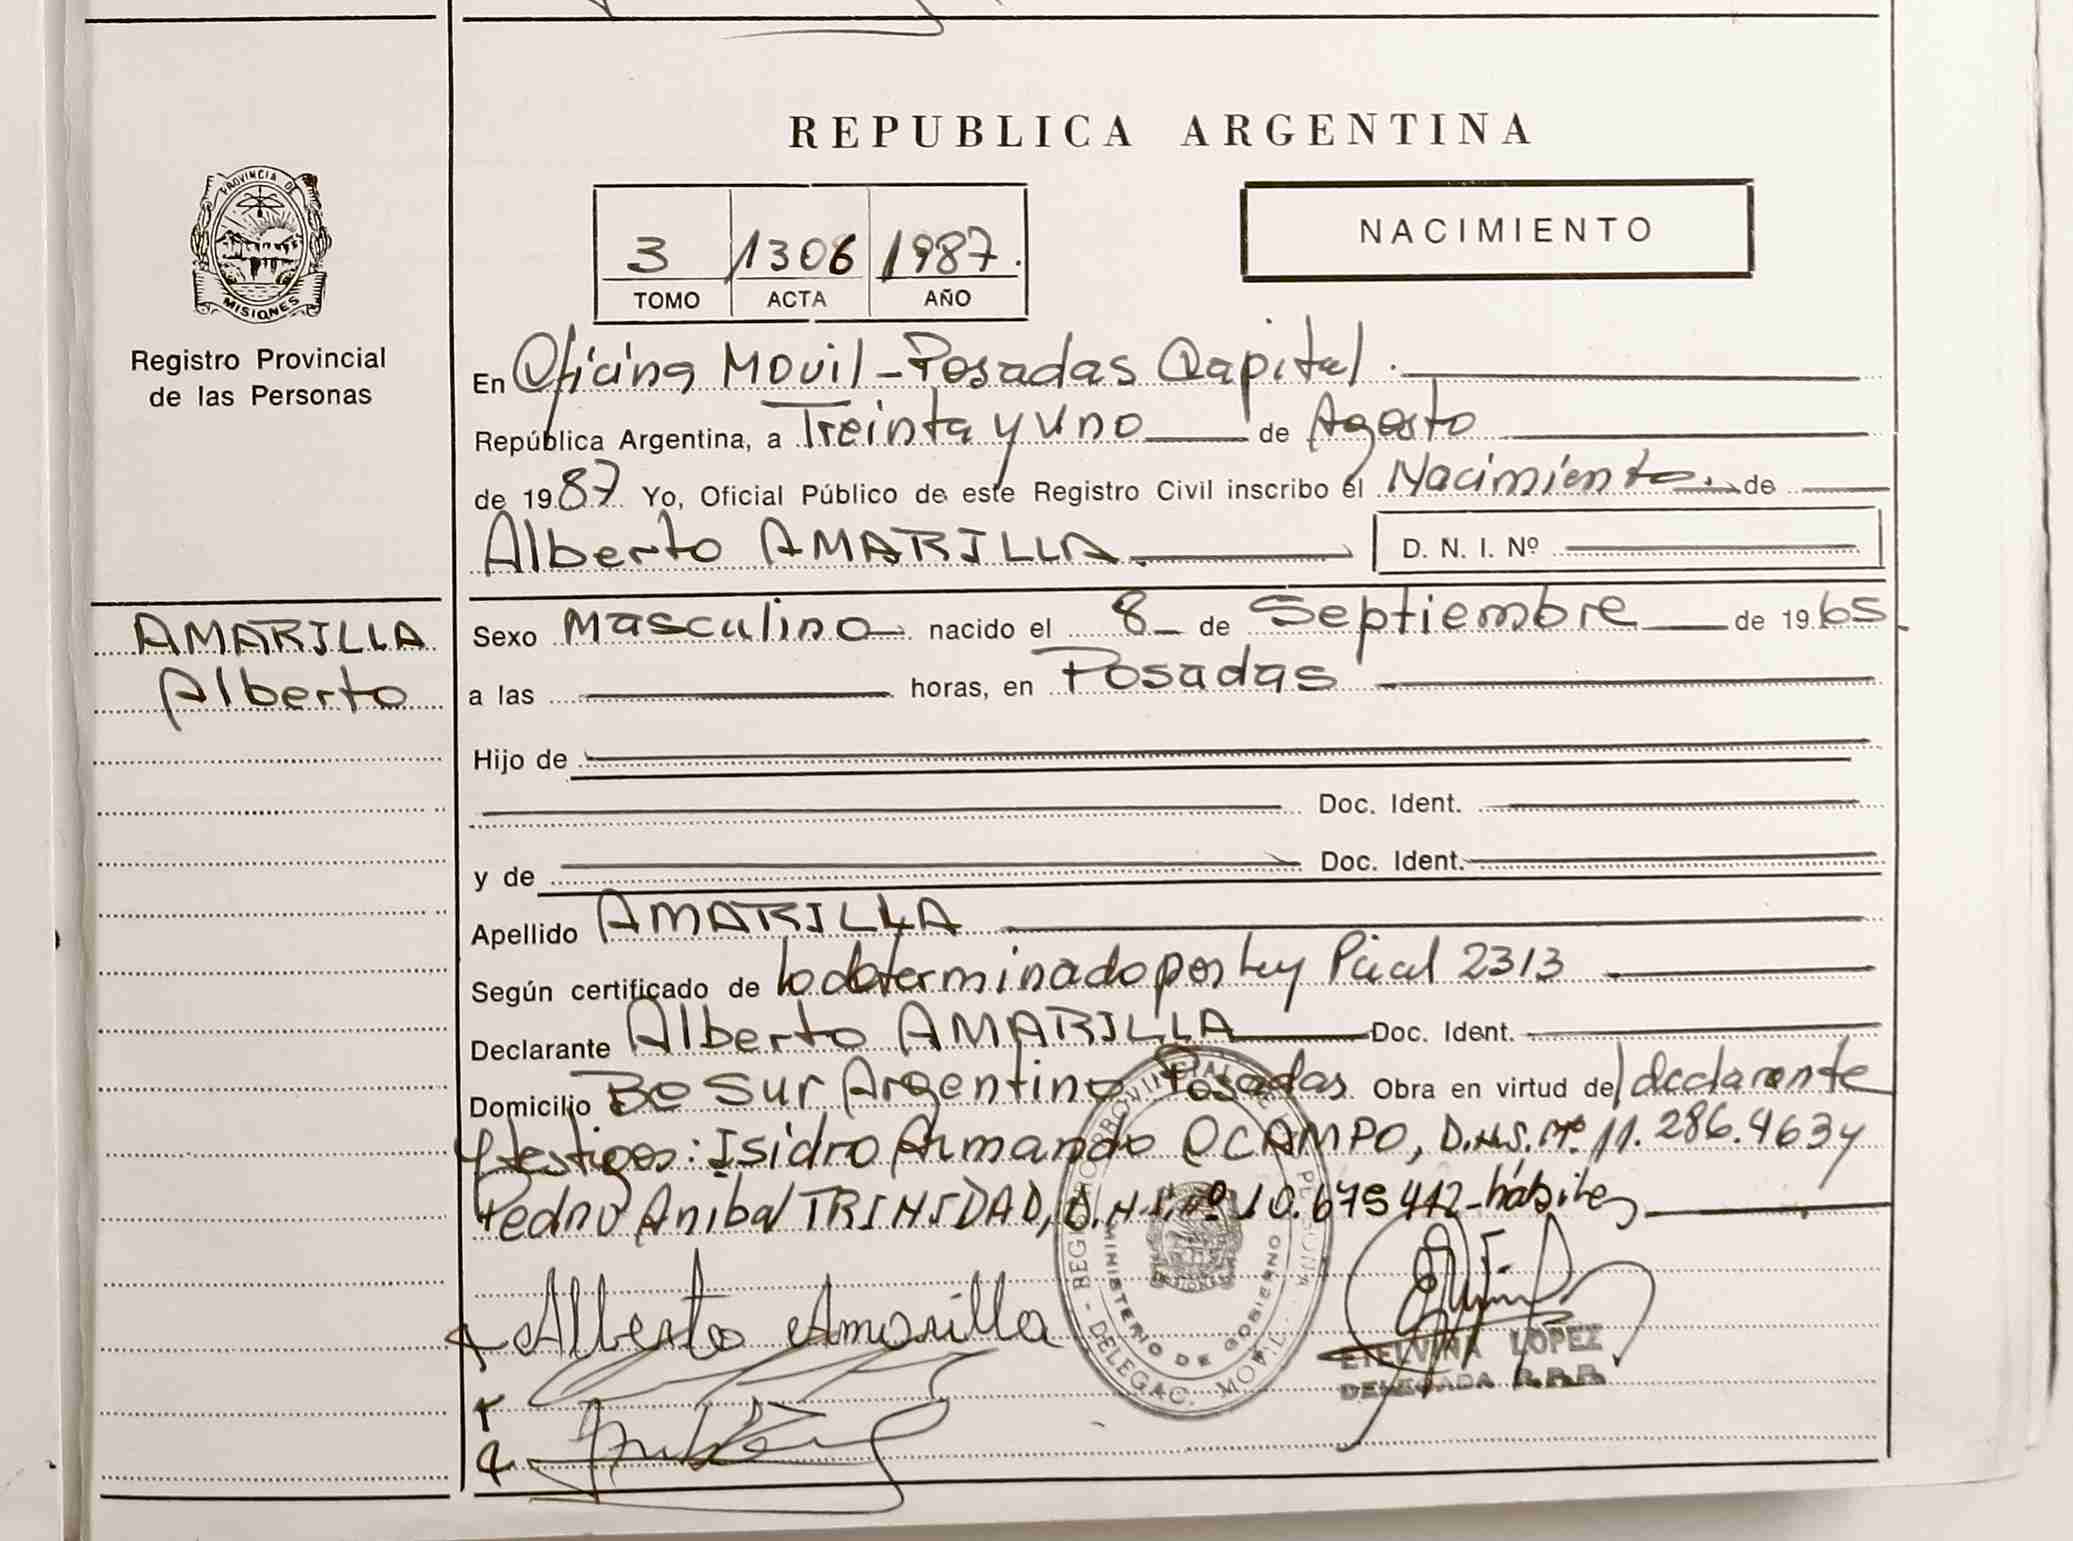 REPUBLICA ARGENTINA
PROVINCIA DE MISIONES
Registro Provincial
de las Personas
3 1306 1987.
TOMO ACTA AÑO
NACIMIENTO
En Oficina Movil - Posadas Capital.
República Argentina, a Treinta y Uno de Agosto
de 1987 Yo, Oficial Público de este Registro Civil inscribo el Nacimiento. de
Alberto AMARILLA
D. N. I. Nº
AMARILLA
Alberto
Sexo Masculino nacido el 8 de Septiembre de 1965
a las horas, en Posadas
Hijo de
Doc. Ident.
y de Doc. Ident.
Apellido AMARILLA
Según certificado de lo determinado por Ley Pcial 2313
Declarante Alberto AMARILLA Doc. Ident.
Domicilio Bo Sur Argentino Posadas Obra en virtud del declarante
y testigos: Isidro Armando OCAMPO, D.N.I. Nº 11.286.463 y
Pedro Anibal TRINIDAD, D.N.I. Nº 10.675 412 - hábiles
Alberto Amarilla
REGISTRO PROVINCIAL DE LAS PERSONAS - DELEGAC. MOVIL
MINISTERIO DE GOBIERNO
ETELVINA LOPEZ
DELEGADA R.P.P.